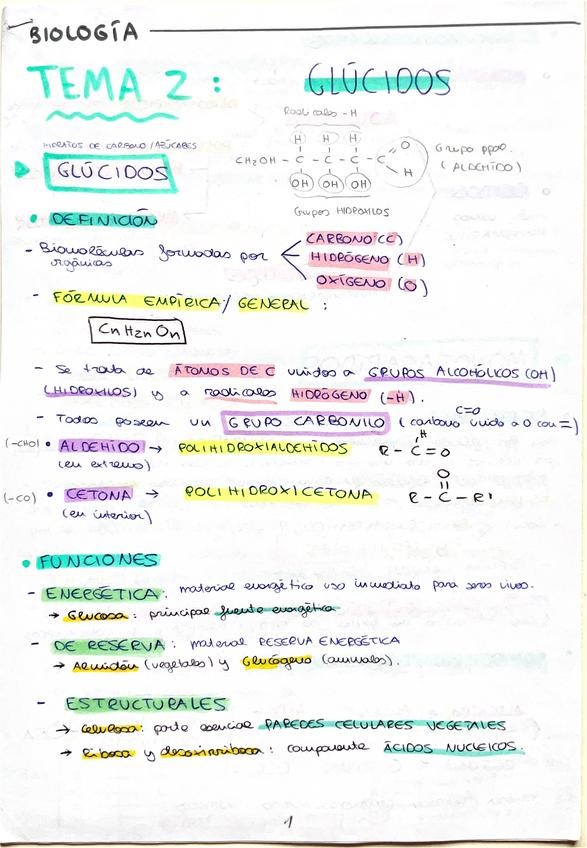 BIOLOGÍA
TEMA 2: GLÚCIDOS
Radicales -H
H H H O
HIDRATOS DE CARBONO / AZÚCARES
CH2OH - C - C - C - C
H
Grupo ppal.
(ALDEHÍDO)
GLÚCIDOS
OH OH OH
Grupos HIDROXILOS
• DEFINICIÓN
- Biomoléculas formadas por
orgánicas
CARBONO (C)
HIDRÓGENO (H)
OXÍGENO (O)
- FÓRMULA EMPÍRICA / GENERAL :
CnH2nOn
- Se trata de ÁTOMOS DE C unidos a GRUPOS ALCOHÓLICOS (OH)
(HIDROXILOS) y a radicales HIDRÓGENO (-H).
C=O
- Todos poseen un GRUPO CARBONILO (carbono unido a O con =)
H
(-CHO) • ALDEHÍDO → POLIHIDROXIALDEHÍDOS R - C = O
(en extremo)
O
(-CO) • CETONA → POLIHIDROXICETONA R - C - R'
(en interior)
• FUNCIONES
- ENERGÉTICA: material energético uso inmediato para seres vivos.
→ Glucosa: principal fuente energética
- DE RESERVA: material RESERVA ENERGÉTICA
→ Almidón (vegetales) y Glucógeno (animales).
- ESTRUCTURALES
→ Celulosa: parte esencial PAREDES CELULARES VEGETALES
→ Ribosa y desoxirribosa: componente ÁCIDOS NUCLEICOS.
1